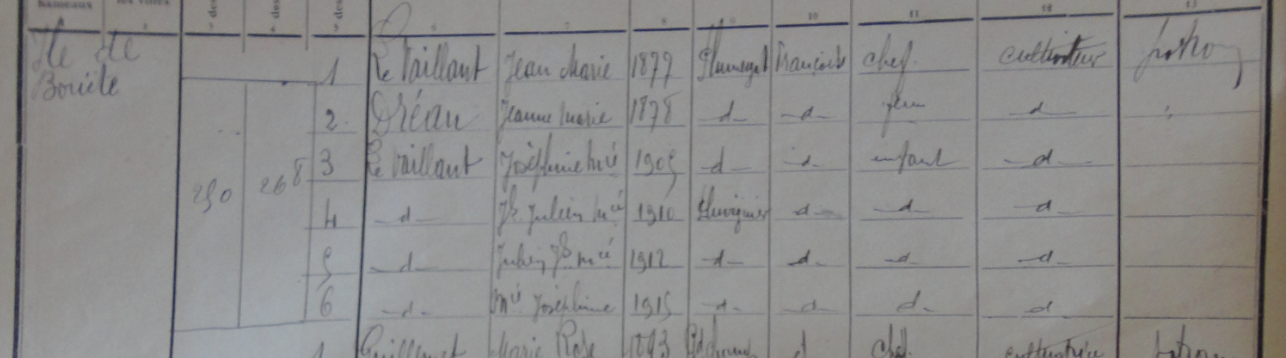 hameaux les villes des des des
5 6 7 8 9 10 11 12 13
Ile de 1 Le Vaillant Jean Marie 1877 Plumergat Française chef cultivateur patron
Bouële
2 Dréan Jeanne Marie 1878 d d fem d
250 268 3 Le Vaillant Joséphine Mié 1905 d d enfant d
4 d Jh Julien Mié 1910 Pluvigner d d d
5 d Julien Jh Mié 1912 d d d d
6 d Mié Joséphine 1915 d d d d
1 Guillemet Marie Rose 1893 d chef cultivatrice patron